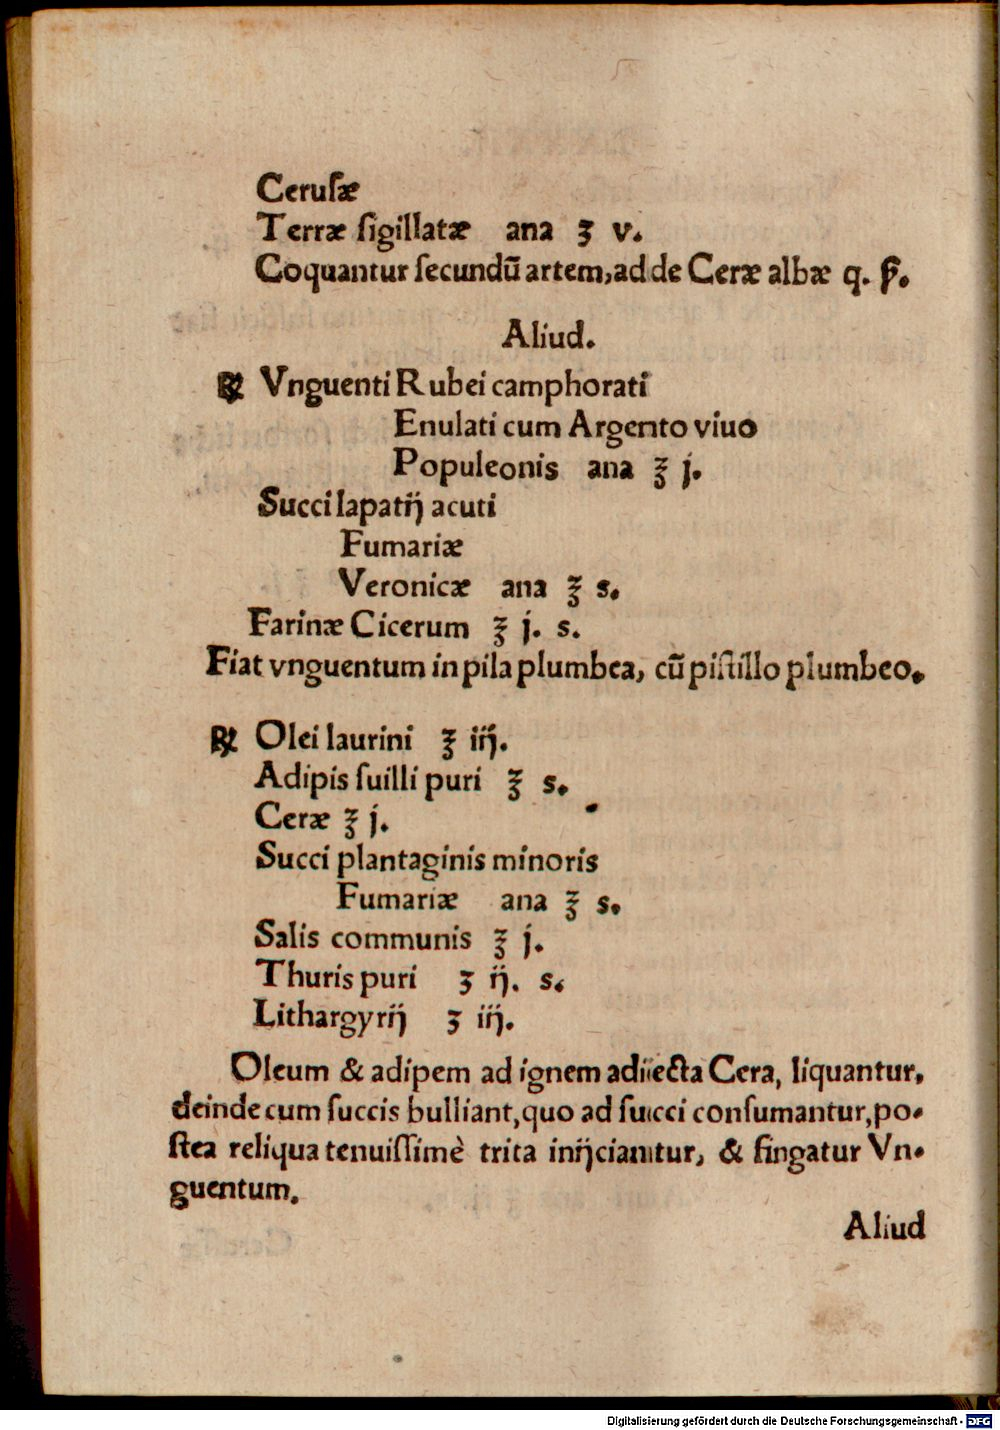 Ceruſæ
Terræ ſigillatæ ana ʒ v.
Coquantur ſecundū artem, adde Ceræ albæ q. ſ̕.
Aliud.
℞ Vnguenti Rubei camphorati
Enulati cum Argento viuo
Populeonis ana ℥ j.
Succi lapatij acuti
Fumariæ
Veronicæ ana ℥ s.
Farinæ Cicerum ℥ j. s.
Fiat vnguentum in pila plumbea, cū piſtillo plumbeo.
℞ Olei laurini ℥ iij.
Adipis ſuilli puri ℥ s.
Ceræ ℥ j.
Succi plantaginis minoris
Fumariæ ana ℥ s.
Salis communis ℥ j.
Thuris puri ʒ ij. s.
Lithargyrij ʒ iij.
Oleum & adipem ad ignem adiiecta Cera, liquantur,
deinde cum ſuccis bulliant, quo ad ſucci conſumantur, po-
ſtea reliqua tenuiſſimè trita inijciantur, & fingatur Vn-
guentum.
Aliud
Digitalisierung gefördert durch die Deutsche Forschungsgemeinschaft - DFG